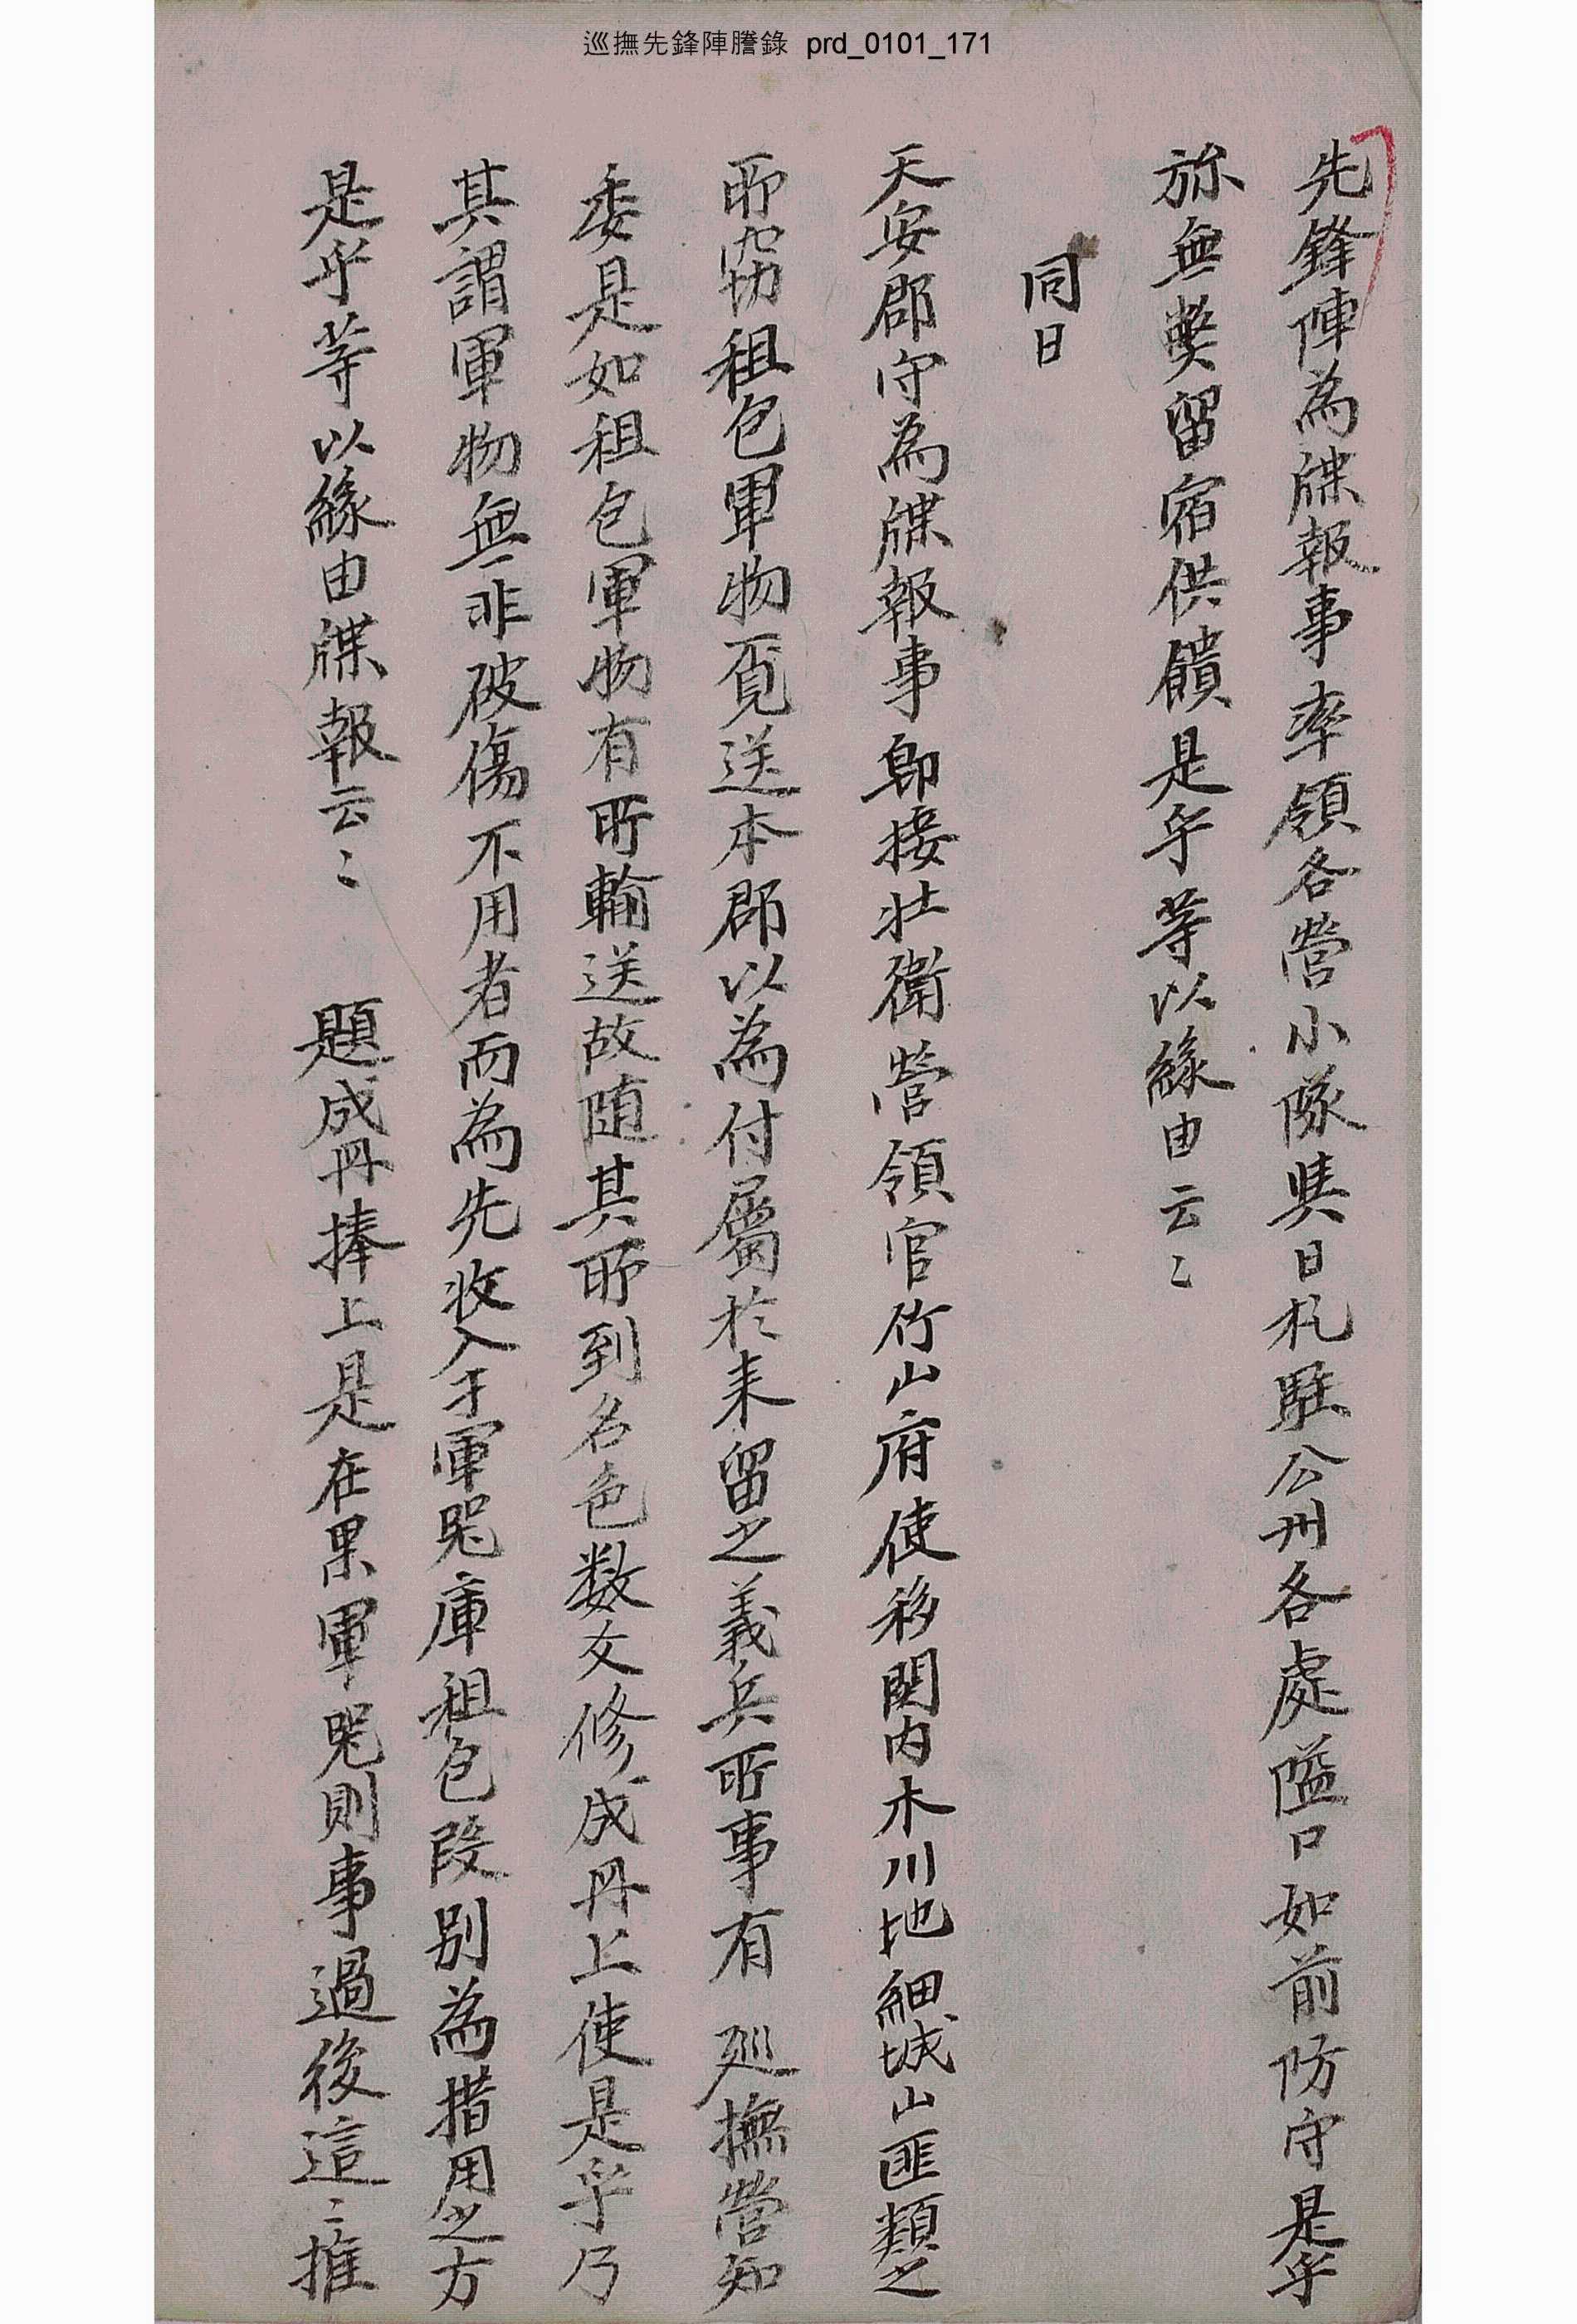 巡撫先鋒陣謄錄 prd_0101_171
先鋒陣為牒報事率領各營小隊與日札駐公州各處隘口如前防守是乎
旀無弊留宿供饋是乎等以緣由云〻
同日
天安郡守為牒報事卽接壯衛營領官竹山府使移関内木川地細城山匪類之
所窃租包軍物覓送本郡以為付屬於来留之義兵所事有 巡撫營知
委是如租包軍物有所輸送故随其所到名色数爻修成冊上使是乎乃
其謂軍物無非破傷不用者而為先收入于軍噐庫租包段別為措用之方
是乎等以緣由牒報云〻 題成冊捧上是在果軍噐則事過後這〻推